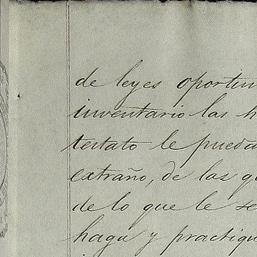 de leyes oportun
inventario las h
testato le pueda
extraño, de las q
de lo que le se
haga y practiqu